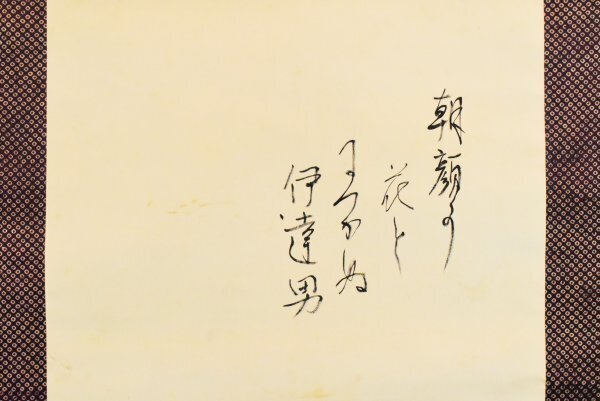 朝顔の
花と
につかぬ
伊達男